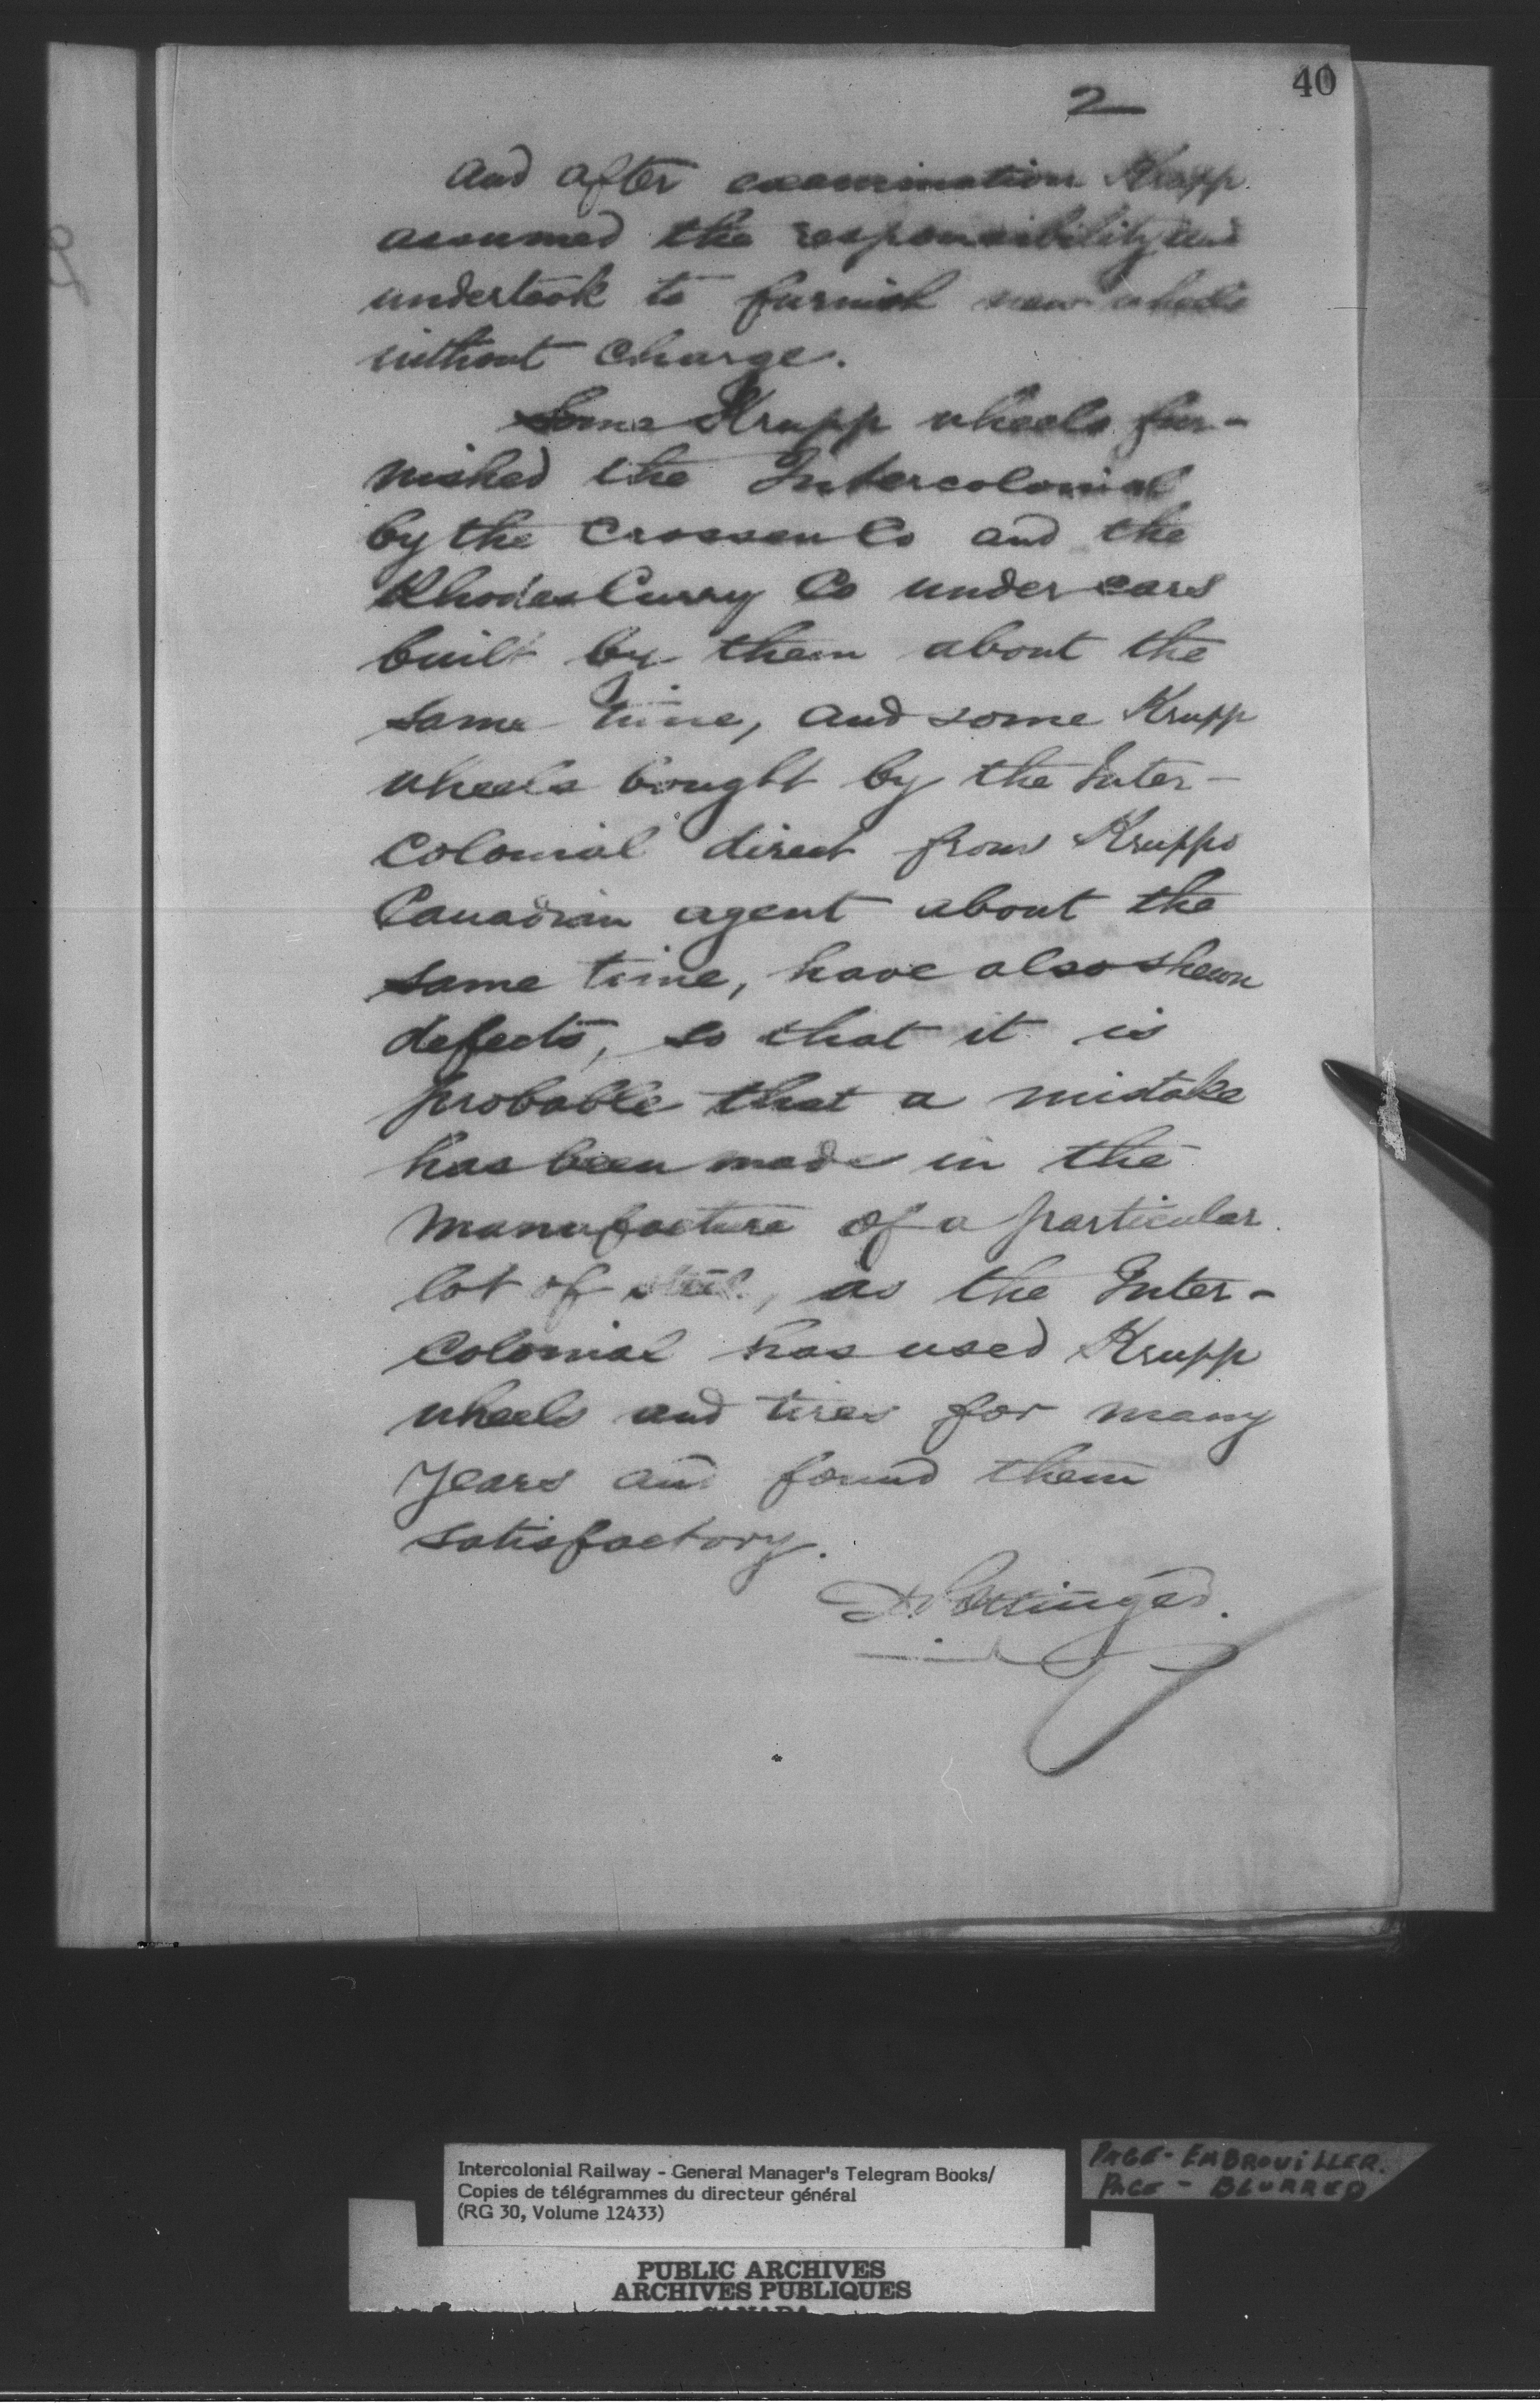 40
2
and after examination Krupp
assumed the responsibility and
undertook to furnish new wheels
without charge.
Some Krupp wheels fur-
nished the Intercolonial
by the Crossen Co and the
Rhodes Curry Co under cars
built by them about the
same time, and some Krupp
wheels bought by the Inter-
colonial direct from Krupps
Canadian agent about the
same time, have also shewn
defects, so that it is
probable that a mistake
has been made in the
manufacture of a particular
lot of steel, as the Inter-
colonial has used Krupp
wheels and tires for many
years and found them
satisfactory.
D. Pottinger.
Intercolonial Railway - General Manager's Telegram Books/
Copies de télégrammes du directeur général
(RG 30, Volume 12433)
PAGE - EMBROUILLER.
PAGE - BLURRED
PUBLIC ARCHIVES
ARCHIVES PUBLIQUES
CANADA